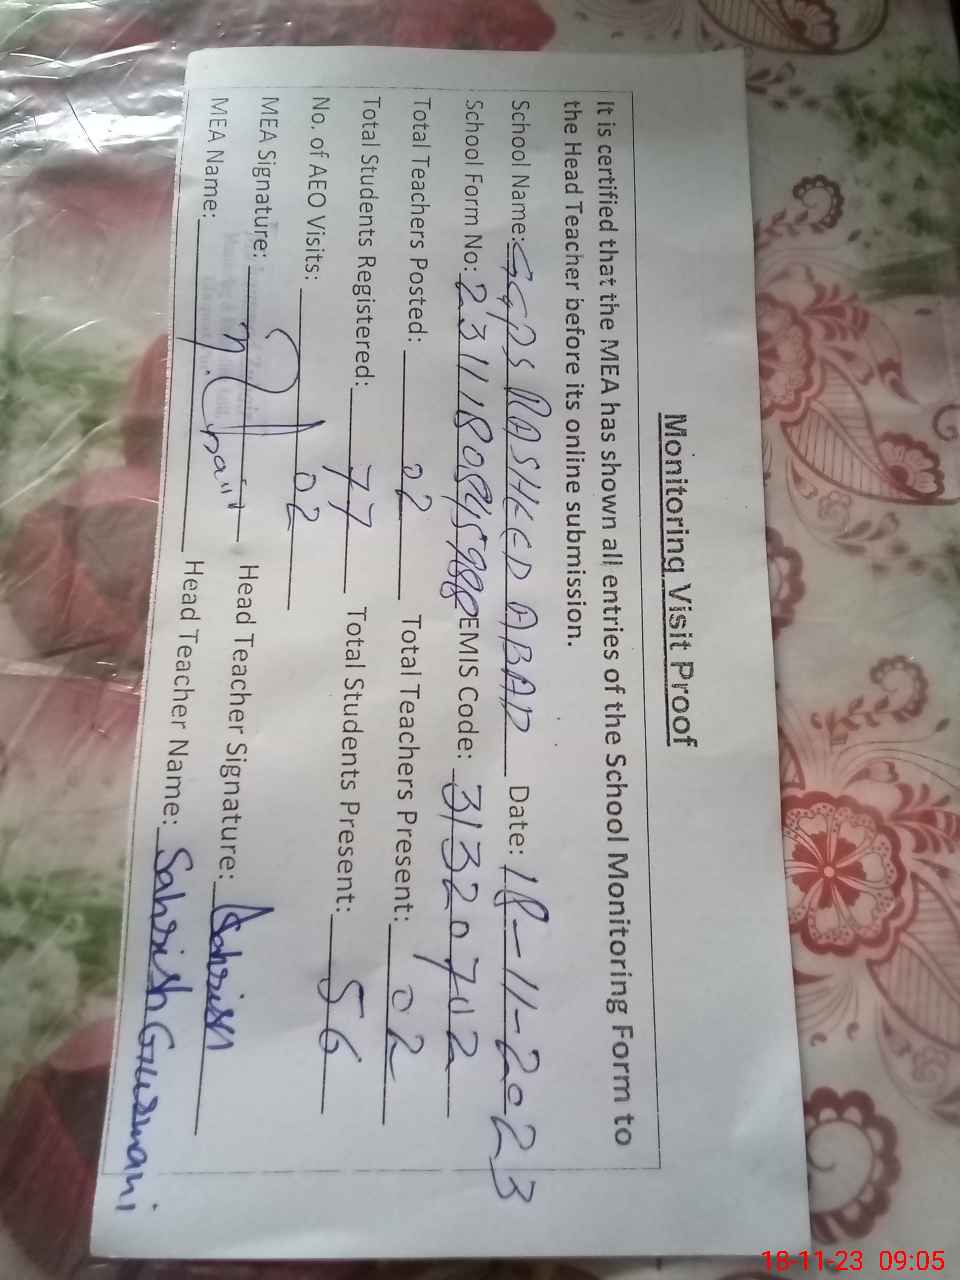 Monitoring Visit Proof
It is certified that the MEA has shown all entries of the School Monitoring Form to
the Head Teacher before its online submission.
School Name: GGPS RASHEED ABAD Date: 18-11-2023
School Form No: EMIS Code: 31320702
Total Teachers Posted: 02 Total Teachers Present: 02
Total Students Registered: 77 Total Students Present: 56
No. of AEO Visits: 02
MEA Signature: Head Teacher Signature: Sehrish
MEA Name: Head Teacher Name: Sehrish
18-11-23 09:05